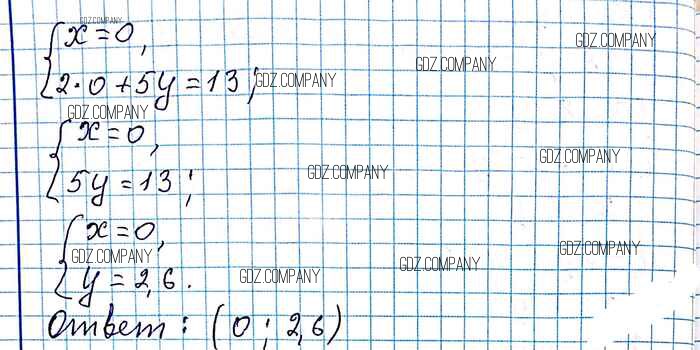 GDZ.COMPANY
x = 0,
GDZ.COMPANY
GDZ.COMPANY
2 · 0 + 5y = 13;
GDZ.COMPANY
GDZ.COMPANY
x = 0,
GDZ.COMPANY
GDZ.COMPANY
5y = 13;
x = 0,
GDZ.COMPANY
GDZ.COMPANY
GDZ.COMPANY
y = 2,6.
GDZ.COMPANY
Ответ: (0; 2,6)